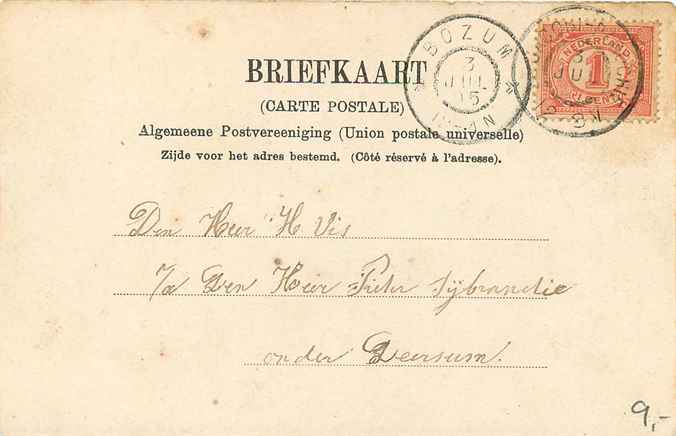 BOZUM
3
JUL
05
NEDERLAND
1
CENT
BRIEFKAART
(CARTE POSTALE)
Algemeene Postvereeniging (Union postale universelle)
Zijde voor het adres bestemd. (Côté réservé à l'adresse).
Den Heer H Vis
p/a Den Heer Pieter Sijbrandie
onder Deersum.
9,-